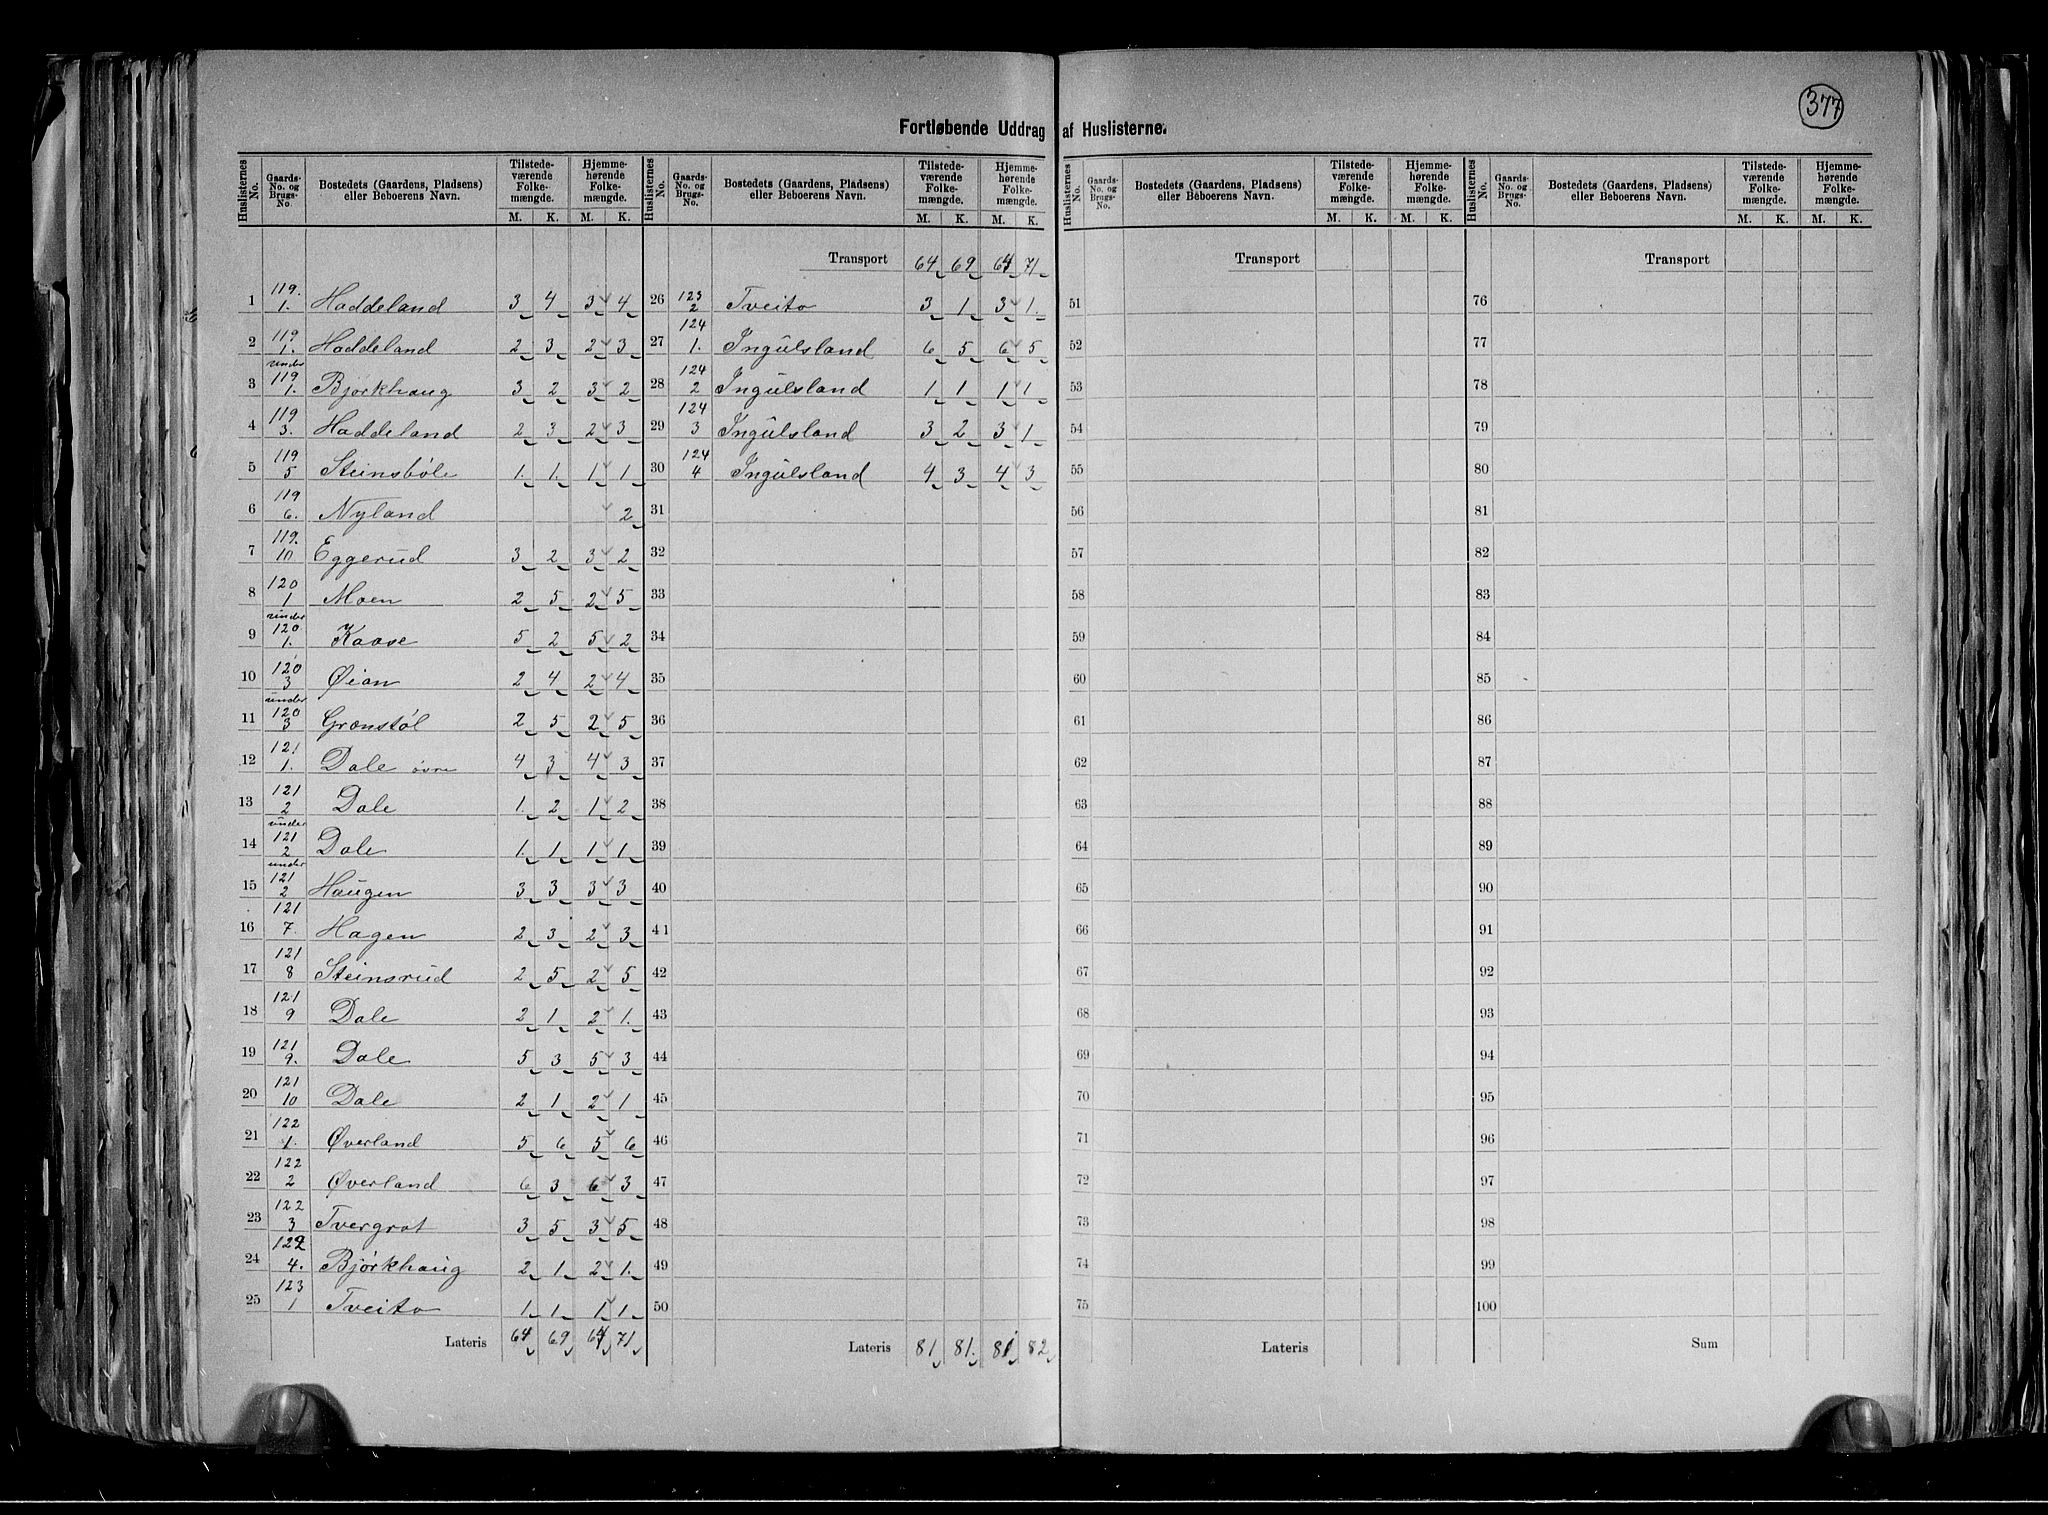 377
Fortløbende Uddrag af Huslisterne.
Huslisternes No. | Gaards-No. og Brugs-No. | Bostedets (Gaardens, Pladsens) eller Beboerens Navn. | Tilstedeværende Folkemængde. M. K. | Hjemmehørende Folkemængde. M. K.
1 | 119. 1. | Haddeland | 3 | 4 | 3 | 4
2 | 119 1. | Haddeland | 2 | 3 | 2 | 3
3 | under 119 1. | Bjørkhaug | 3 | 2 | 3 | 2
4 | 119 3. | Haddeland | 2 | 3 | 2 | 3
5 | 119 5 | Steinsbøle | 1. | 1. | 1 | 1
6 | 119 6. | Nyland | | | | 2
7 | 119. 10 | Eggerud | 3 | 2 | 3 | 2
8 | 120 1 | Moen | 2 | 5 | 2 | 5
9 | under 120 1. | Kaase | 5 | 2 | 5 | 2
10 | 120 3 | Øian | 2 | 4 | 2 | 4
11 | under 120 3 | Grønstøl | 2 | 5 | 2 | 5
12 | 121 1. | Dale øvre | 4 | 3 | 4 | 3
13 | 121 2 | Dale | 1. | 2 | 1 | 2
14 | under 121 2 | Dale | 1. | 1 | 1 | 1
15 | under 121 2 | Haugen | 3 | 3 | 3 | 3
16 | 121 7. | Hagen | 2 | 3 | 2 | 3
17 | 121 8 | Steinsrud | 2 | 5 | 2 | 5
18 | 121 9 | Dale | 2 | 1 | 2 | 1.
19 | 121 9. | Dale | 5 | 3 | 5 | 3
20 | 121 10 | Dale | 2 | 1 | 2 | 1
21 | 122 1. | Øverland | 5 | 6 | 5 | 6
22 | 122 2 | Øverland | 6 | 3 | 6 | 3
23 | 122 3 | Tvergrot | 3 | 5 | 3 | 5
24 | 122 4. | Bjørkhaug | 2 | 1 | 2 | 1.
25 | 123 1 | Tveito | 1 | 1 | 1 | 1
Lateris | 64 | 69 | 64 | 71
Huslisternes No. | Gaards-No. og Brugs-No. | Bostedets (Gaardens, Pladsens) eller Beboerens Navn. | Tilstedeværende Folkemængde. M. K. | Hjemmehørende Folkemængde. M. K.
Transport | 64 | 69 | 64 | 71
26 | 123 2 | Tveito | 3 | 1 | 3 | 1.
27 | 124 1. | Ingulsland | 6 | 5 | 6 | 5
28 | 124 2 | Ingulsland | 1 | 1 | 1 | 1
29 | 124 3 | Ingulsland | 3 | 2 | 3 | 1
30 | 124 4 | Ingulsland | 4 | 3 | 4 | 3
31
32
33
34
35
36
37
38
39
40
41
42
43
44
45
46
47
48
49
50
Lateris | 81 | 81. | 81 | 82
Huslisternes No. | Gaards-No. og Brugs-No. | Bostedets (Gaardens, Pladsens) eller Beboerens Navn. | Tilstedeværende Folkemængde. M. K. | Hjemmehørende Folkemængde. M. K.
Transport
51
52
53
54
55
56
57
58
59
60
61
62
63
64
65
66
67
68
69
70
71
72
73
74
75
Lateris
Huslisternes No. | Gaards-No. og Brugs-No. | Bostedets (Gaardens, Pladsens) eller Beboerens Navn. | Tilstedeværende Folkemængde. M. K. | Hjemmehørende Folkemængde. M. K.
Transport
76
77
78
79
80
81
82
83
84
85
86
87
88
89
90
91
92
93
94
95
96
97
98
99
100
Sum